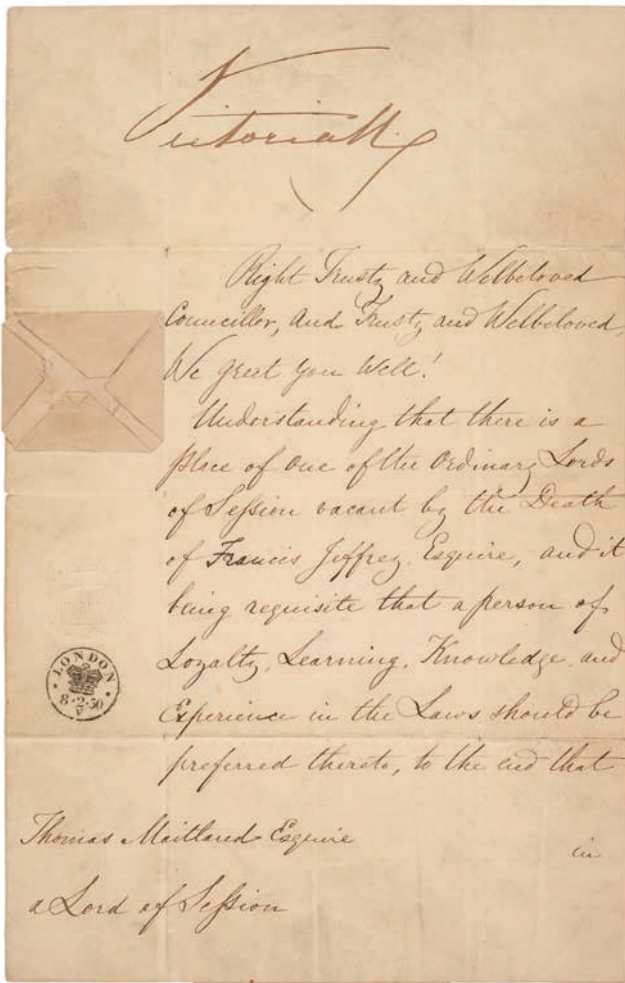 Victoria R.
Right Trusty and Welbeloved
Councillor, and Trusty and Welbeloved,
We greet you Well!
Understanding that there is a
place of one of the Ordinary Lords
of Session vacant by the Death
of Francis Jeffrey Esquire, and it
being requisite that a person of
Loyalty, Learning, Knowledge and
Experience in the Laws should be
preferred thereto, to the end that
in
LONDON
8·2·50
V
Thomas Maitland Esquire
a Lord of Session